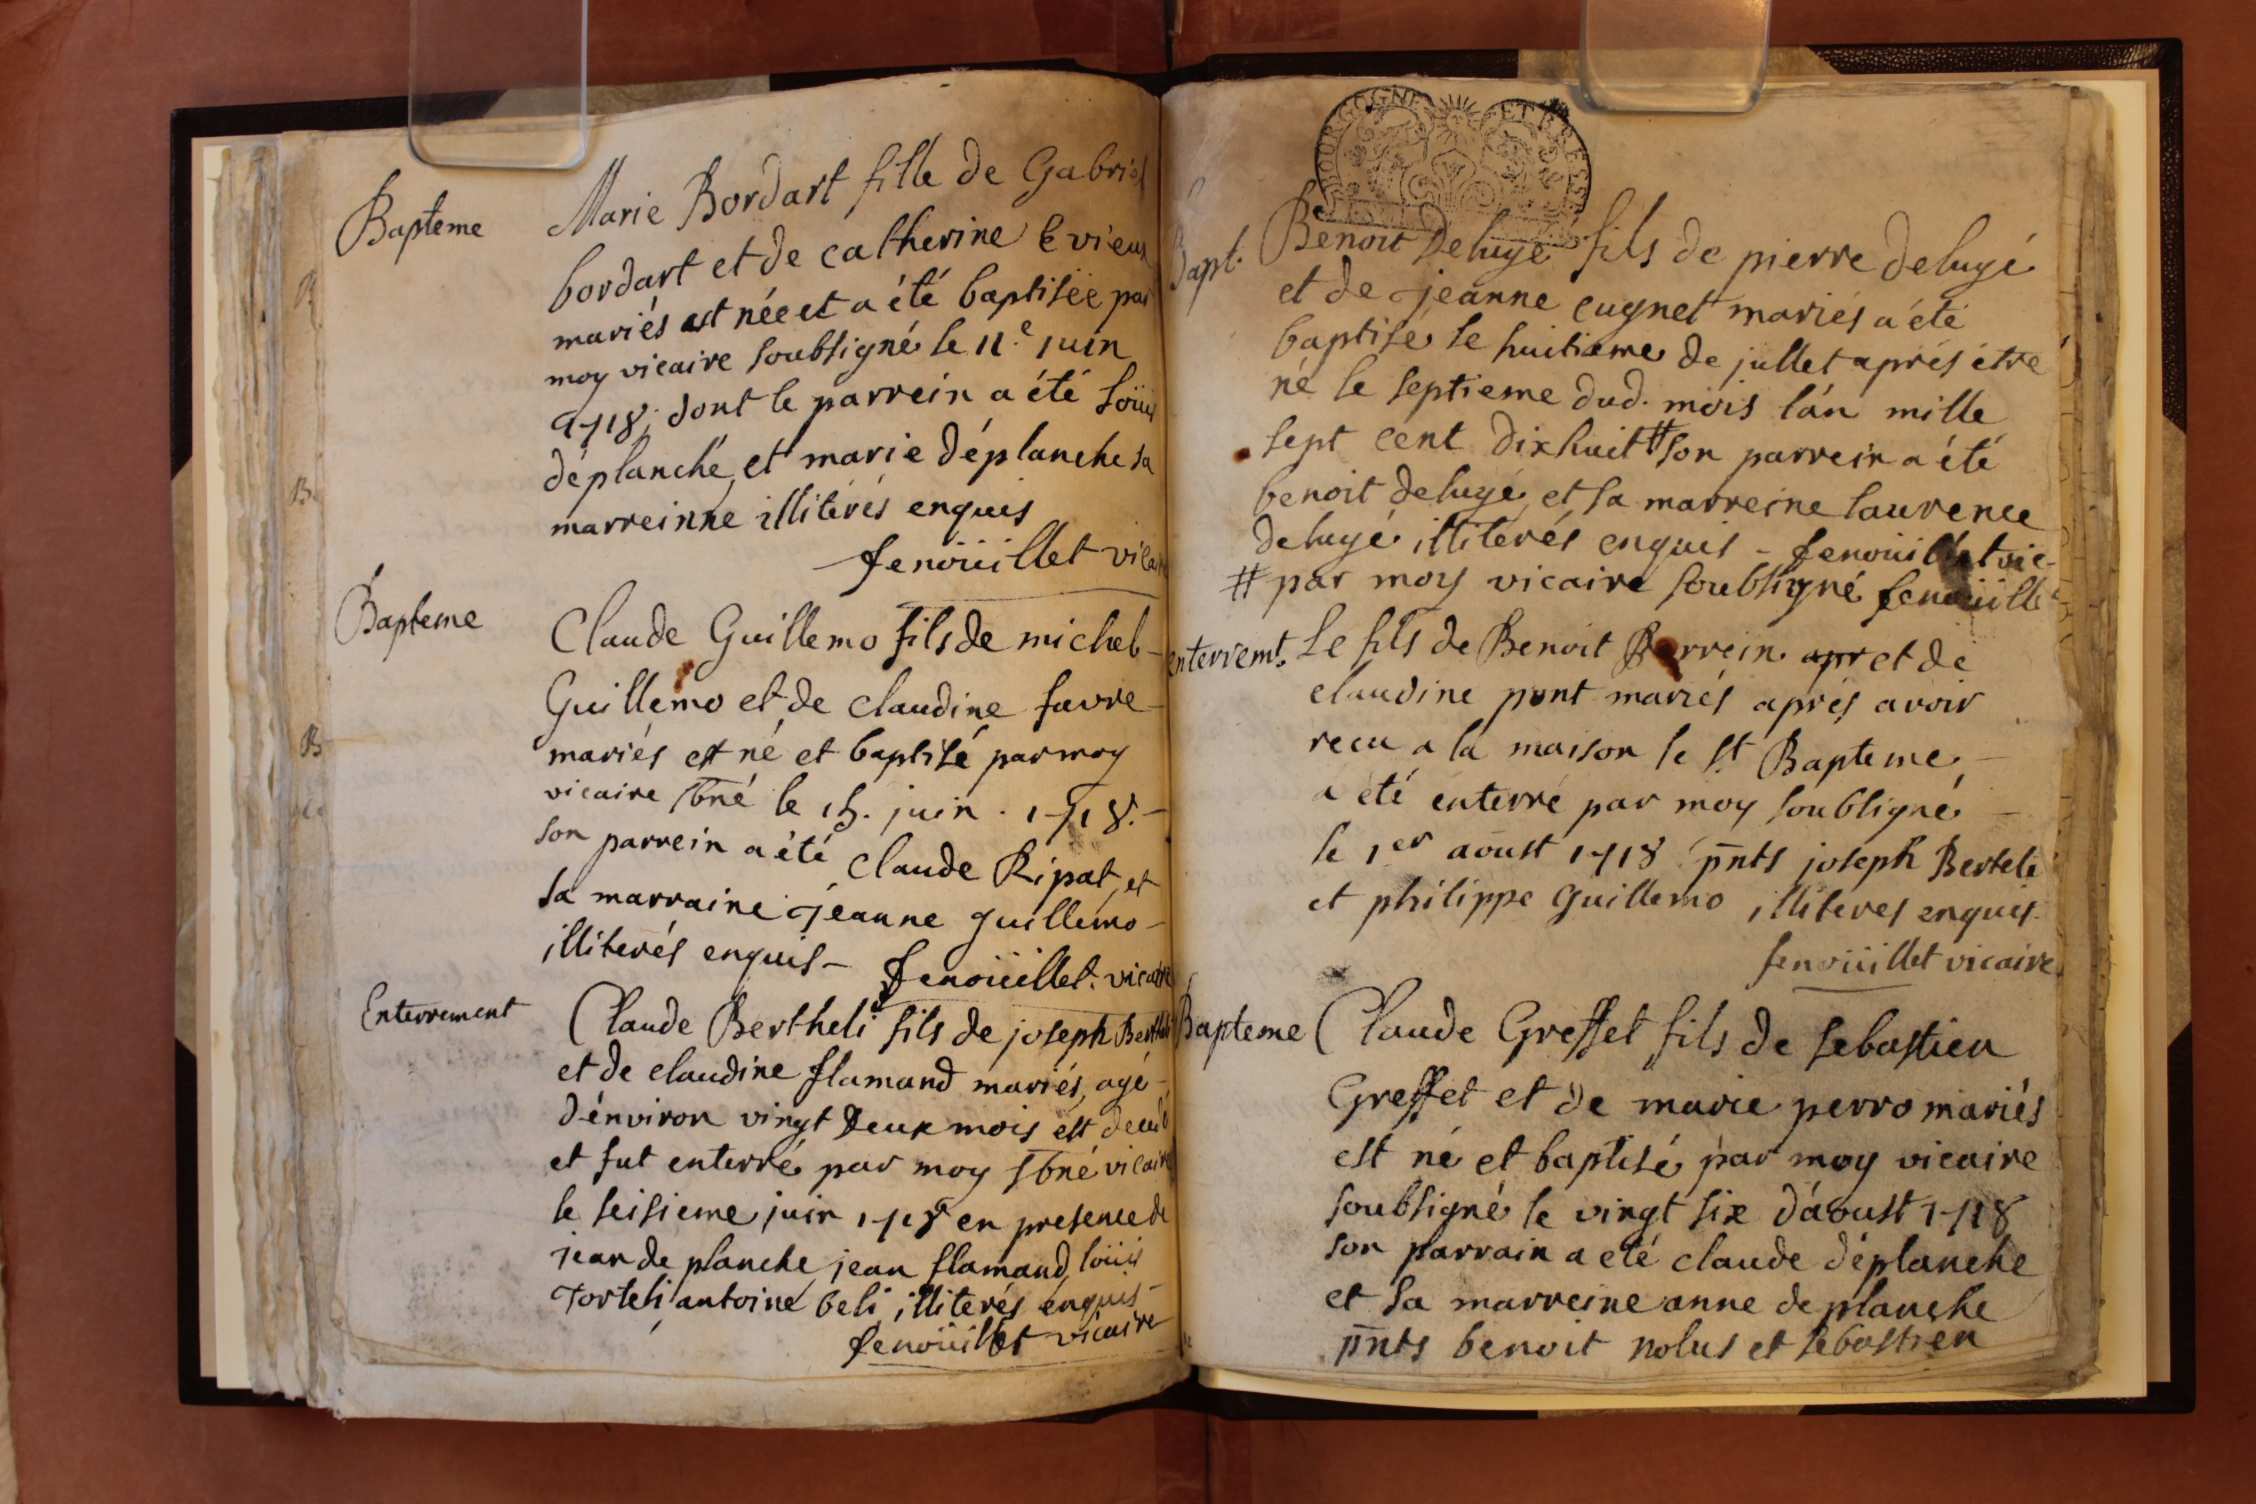 Bapteme
Marie Bordart fille de Gabriel
bordart et de catherine levieux
mariés est née et a été baptisée par
moy vicaire soubsigné le 11.e juin
1718; dont le parrein a été loüis
déplanche, et marie déplanche sa
marreinne illiterés enquis
fenoüillet vicaire
Bapteme
Claude Guillemo fils de michel
Guillemo et de claudine favre
mariés est né et baptisé par moy
vicaire sbné le 15. juin. 1718.
son parrein a été claude Ripat, et
sa marraine jéanne guillemo
illiterés enquis - fenoüillet. vicaire
Enterrement
Claude Bertheli fils de joseph Bertheli
et de claudine flamand mariés, agé
d'énviron vingt deux mois est decedé
et fut enterré par moy sbné vicaire
le seisieme juin 1718 en presence de
jean de planche, jean flamand, loüis
Torteli, antoine beli, illiterés enquis
fenoüillet vicaire
BOURGOGNE ET BRESSE
Bapt.
Benoit Delugé fils de pierre delugé
et de jeanne cugnet mariés a été
baptisé le huitieme de jullet aprés étre
né le septieme dud. mois l'án mille
sept cent dix huit # son parrein a été
benoit delugé, et sa marreine laurence
delugé illiterés enquis - fenoüillet vic-
# par moy vicaire soubsigné fenoüillet
enterremt.
Le fils de Benoit Perrein apr et de
claudine pont mariés aprés avoir
recu a la maison le st. Bapteme,
a été enterré par moy soubsigné
le 1er aoust 1718 pnts joseph Berteli
et philippe Guillemo illiteres enquis.
fenoüillet vicaire
Bapteme
Claude Greffet fils de sebastien
Greffet et de marie perro mariés
est né et baptisé par moy vicaire
soubsigné le vingt six d'áoust 1718
son parrain a eté claude déplanche
et sa marreine anne deplanche
pnts benoit nolus et sebastien